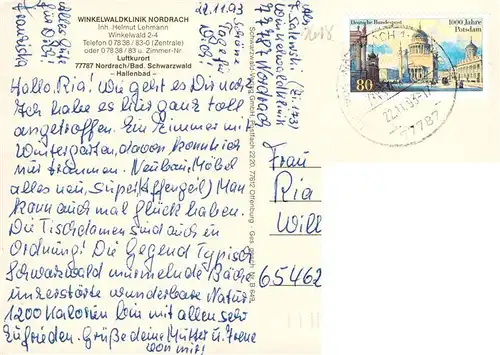 WINKELWALDKLINIK NORDRACH
Inh. Helmut Lehmann
Winkelwald 2-4
Telefon 0 78 38 / 83-0 (Zentrale)
oder 0 78 38 / 83 u. Zimmer-Nr.
Luftkurort
77787 Nordrach/Bad. Schwarzwald
– Hallenbad –
22.11.93
Alles Gute
für Dich!
Franziska
Schöne
Tage für
Dich!
Hallo, Ria! Wie geht es Dir noch?
Ich habe es hier ganz toll
angetroffen. Ein Zimmer mit
Wintergarten, davon konnte ich
nur träumen. Neubau, Möbel
alles neu, Super (Affengeil) Man
kann auch mal Glück haben.
Die Tischdamen sind auch in
Ordnung! Die Gegend Typisch
Schwarzwald murmelnde Bäche
unzerstörte wunderbare Natur.
1200 Kalorien bin mit allem sehr
zufrieden. Grüße deine Mutter u. Irene
von mir!
Winkelwaldklinik
Nordrach
Deutsche Bundespost
1000 Jahre
Potsdam
80
22.11.93-17
77787
Frau
Ria
Will
65462